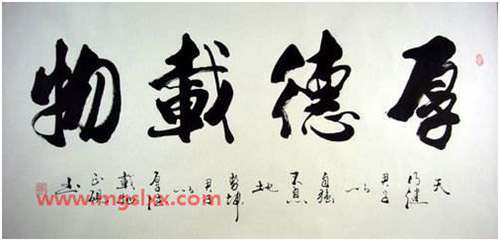 厚德載物
天行健君子以自强不息地势坤君子以厚德载物
书
www.mgslxx.com